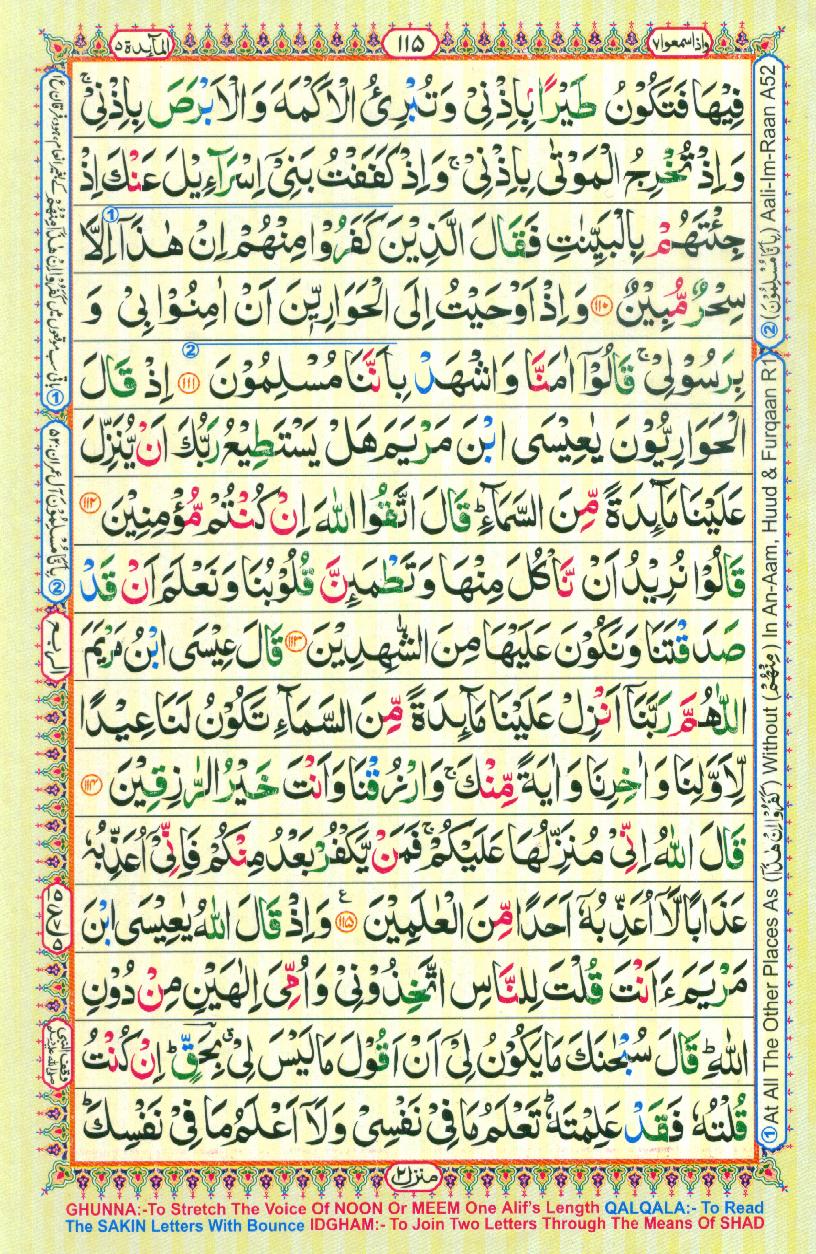 واذا سمعوا ٧
١١٥
المآىدة ٥
فِيْهَا فَتَكُوْنُ طَيْرًۢا بِاِذْنِيْ وَتُبْرِئُ الْاَكْمَهَ وَالْاَبْرَصَ بِاِذْنِيْ ۚ
وَاِذْ تُخْرِجُ الْمَوْتٰى بِاِذْنِيْ ۚ وَاِذْ كَفَفْتُ بَنِيْۤ اِسْرَآءِيْلَ عَنْكَ اِذْ
جِئْتَهُمْ بِالْبَيِّنٰتِ فَقَالَ الَّذِيْنَ كَفَرُوْا مِنْهُمْ اِنْ هٰذَاۤ اِلَّا
سِحْرٌ مُّبِيْنٌ ١١٠ وَاِذْ اَوْحَيْتُ اِلَى الْحَوَارِيّٖنَ اَنْ اٰمِنُوْا بِيْ وَ
بِرَسُوْلِيْ ۚ قَالُوْۤا اٰمَنَّا وَاشْهَدْ بِاَنَّنَا مُسْلِمُوْنَ ١١١ اِذْ قَالَ
الْحَوَارِيُّوْنَ يٰعِيْسَى ابْنَ مَرْيَمَ هَلْ يَسْتَطِيْعُ رَبُّكَ اَنْ يُّنَزِّلَ
عَلَيْنَا مَآىِٕدَةً مِّنَ السَّمَآءِ ؕ قَالَ اتَّقُوا اللّٰهَ اِنْ كُنْتُمْ مُّؤْمِنِيْنَ ١١٢
قَالُوْا نُرِيْدُ اَنْ نَّاْكُلَ مِنْهَا وَتَطْمَىِٕنَّ قُلُوْبُنَا وَنَعْلَمَ اَنْ قَدْ
صَدَقْتَنَا وَنَكُوْنَ عَلَيْهَا مِنَ الشّٰهِدِيْنَ ١١٣ قَالَ عِيْسَى ابْنُ مَرْيَمَ
اللّٰهُمَّ رَبَّنَاۤ اَنْزِلْ عَلَيْنَا مَآىِٕدَةً مِّنَ السَّمَآءِ تَكُوْنُ لَنَا عِيْدًا
لِّاَوَّلِنَا وَاٰخِرِنَا وَاٰيَةً مِّنْكَ ۚ وَارْزُقْنَا وَاَنْتَ خَيْرُ الرّٰزِقِيْنَ ١١٤
قَالَ اللّٰهُ اِنِّيْ مُنَزِّلُهَا عَلَيْكُمْ ۚ فَمَنْ يَّكْفُرْ بَعْدُ مِنْكُمْ فَاِنِّيْۤ اُعَذِّبُهٗ
عَذَابًا لَّاۤ اُعَذِّبُهٗۤ اَحَدًا مِّنَ الْعٰلَمِيْنَ ١١٥ ع وَاِذْ قَالَ اللّٰهُ يٰعِيْسَى ابْنَ
مَرْيَمَ ءَاَنْتَ قُلْتَ لِلنَّاسِ اتَّخِذُوْنِيْ وَاُمِّيَ اِلٰهَيْنِ مِنْ دُوْنِ
اللّٰهِ ؕ قَالَ سُبْحٰنَكَ مَا يَكُوْنُ لِيْۤ اَنْ اَقُوْلَ مَا لَيْسَ لِيْ ۗ بِحَقٍّ ؕ اِنْ كُنْتُ
قُلْتُهٗ فَقَدْ عَلِمْتَهٗ ؕ تَعْلَمُ مَا فِيْ نَفْسِيْ وَلَاۤ اَعْلَمُ مَا فِيْ نَفْسِكَ ؕ
① At All The Other Places As (كَفَرُوْا اِنْ هٰذَا) Without (مِنْهُمْ) In An-Aam, Huud & Furqaan R1
② (بِاَنَّا مُسْلِمُوْنَ) Aali-Im-Raan A52
② بِاَنَّا مُسْلِمُوْنَ آل عمران: ۵۲
الربع
منزل ٢
GHUNNA:-To Stretch The Voice Of NOON Or MEEM One Alif's Length QALQALA:- To Read
The SAKIN Letters With Bounce IDGHAM:- To Join Two Letters Through The Means Of SHAD